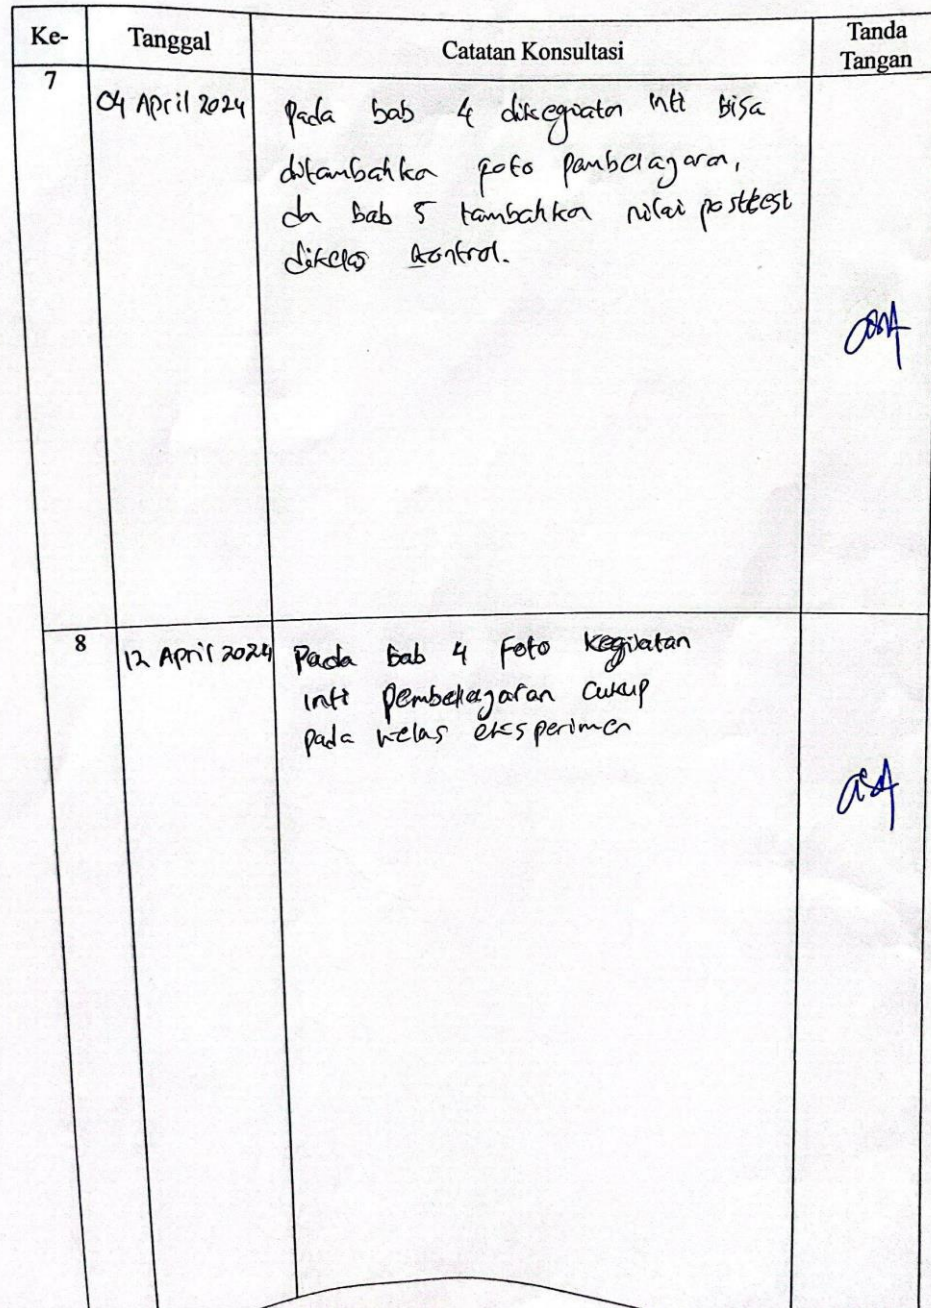 Ke-
Tanggal
Catatan Konsultasi
Tanda
Tangan
7
04 April 2024
Pada bab 4 dikegiatan inti bisa
ditambahkan foto pembelajaran,
dan bab 5 tambahkan nilai posttest
dikelas kontrol.
8
12 April 2024
Pada bab 4 Foto kegiatan
inti pembelajaran cukup
pada kelas eksperimen